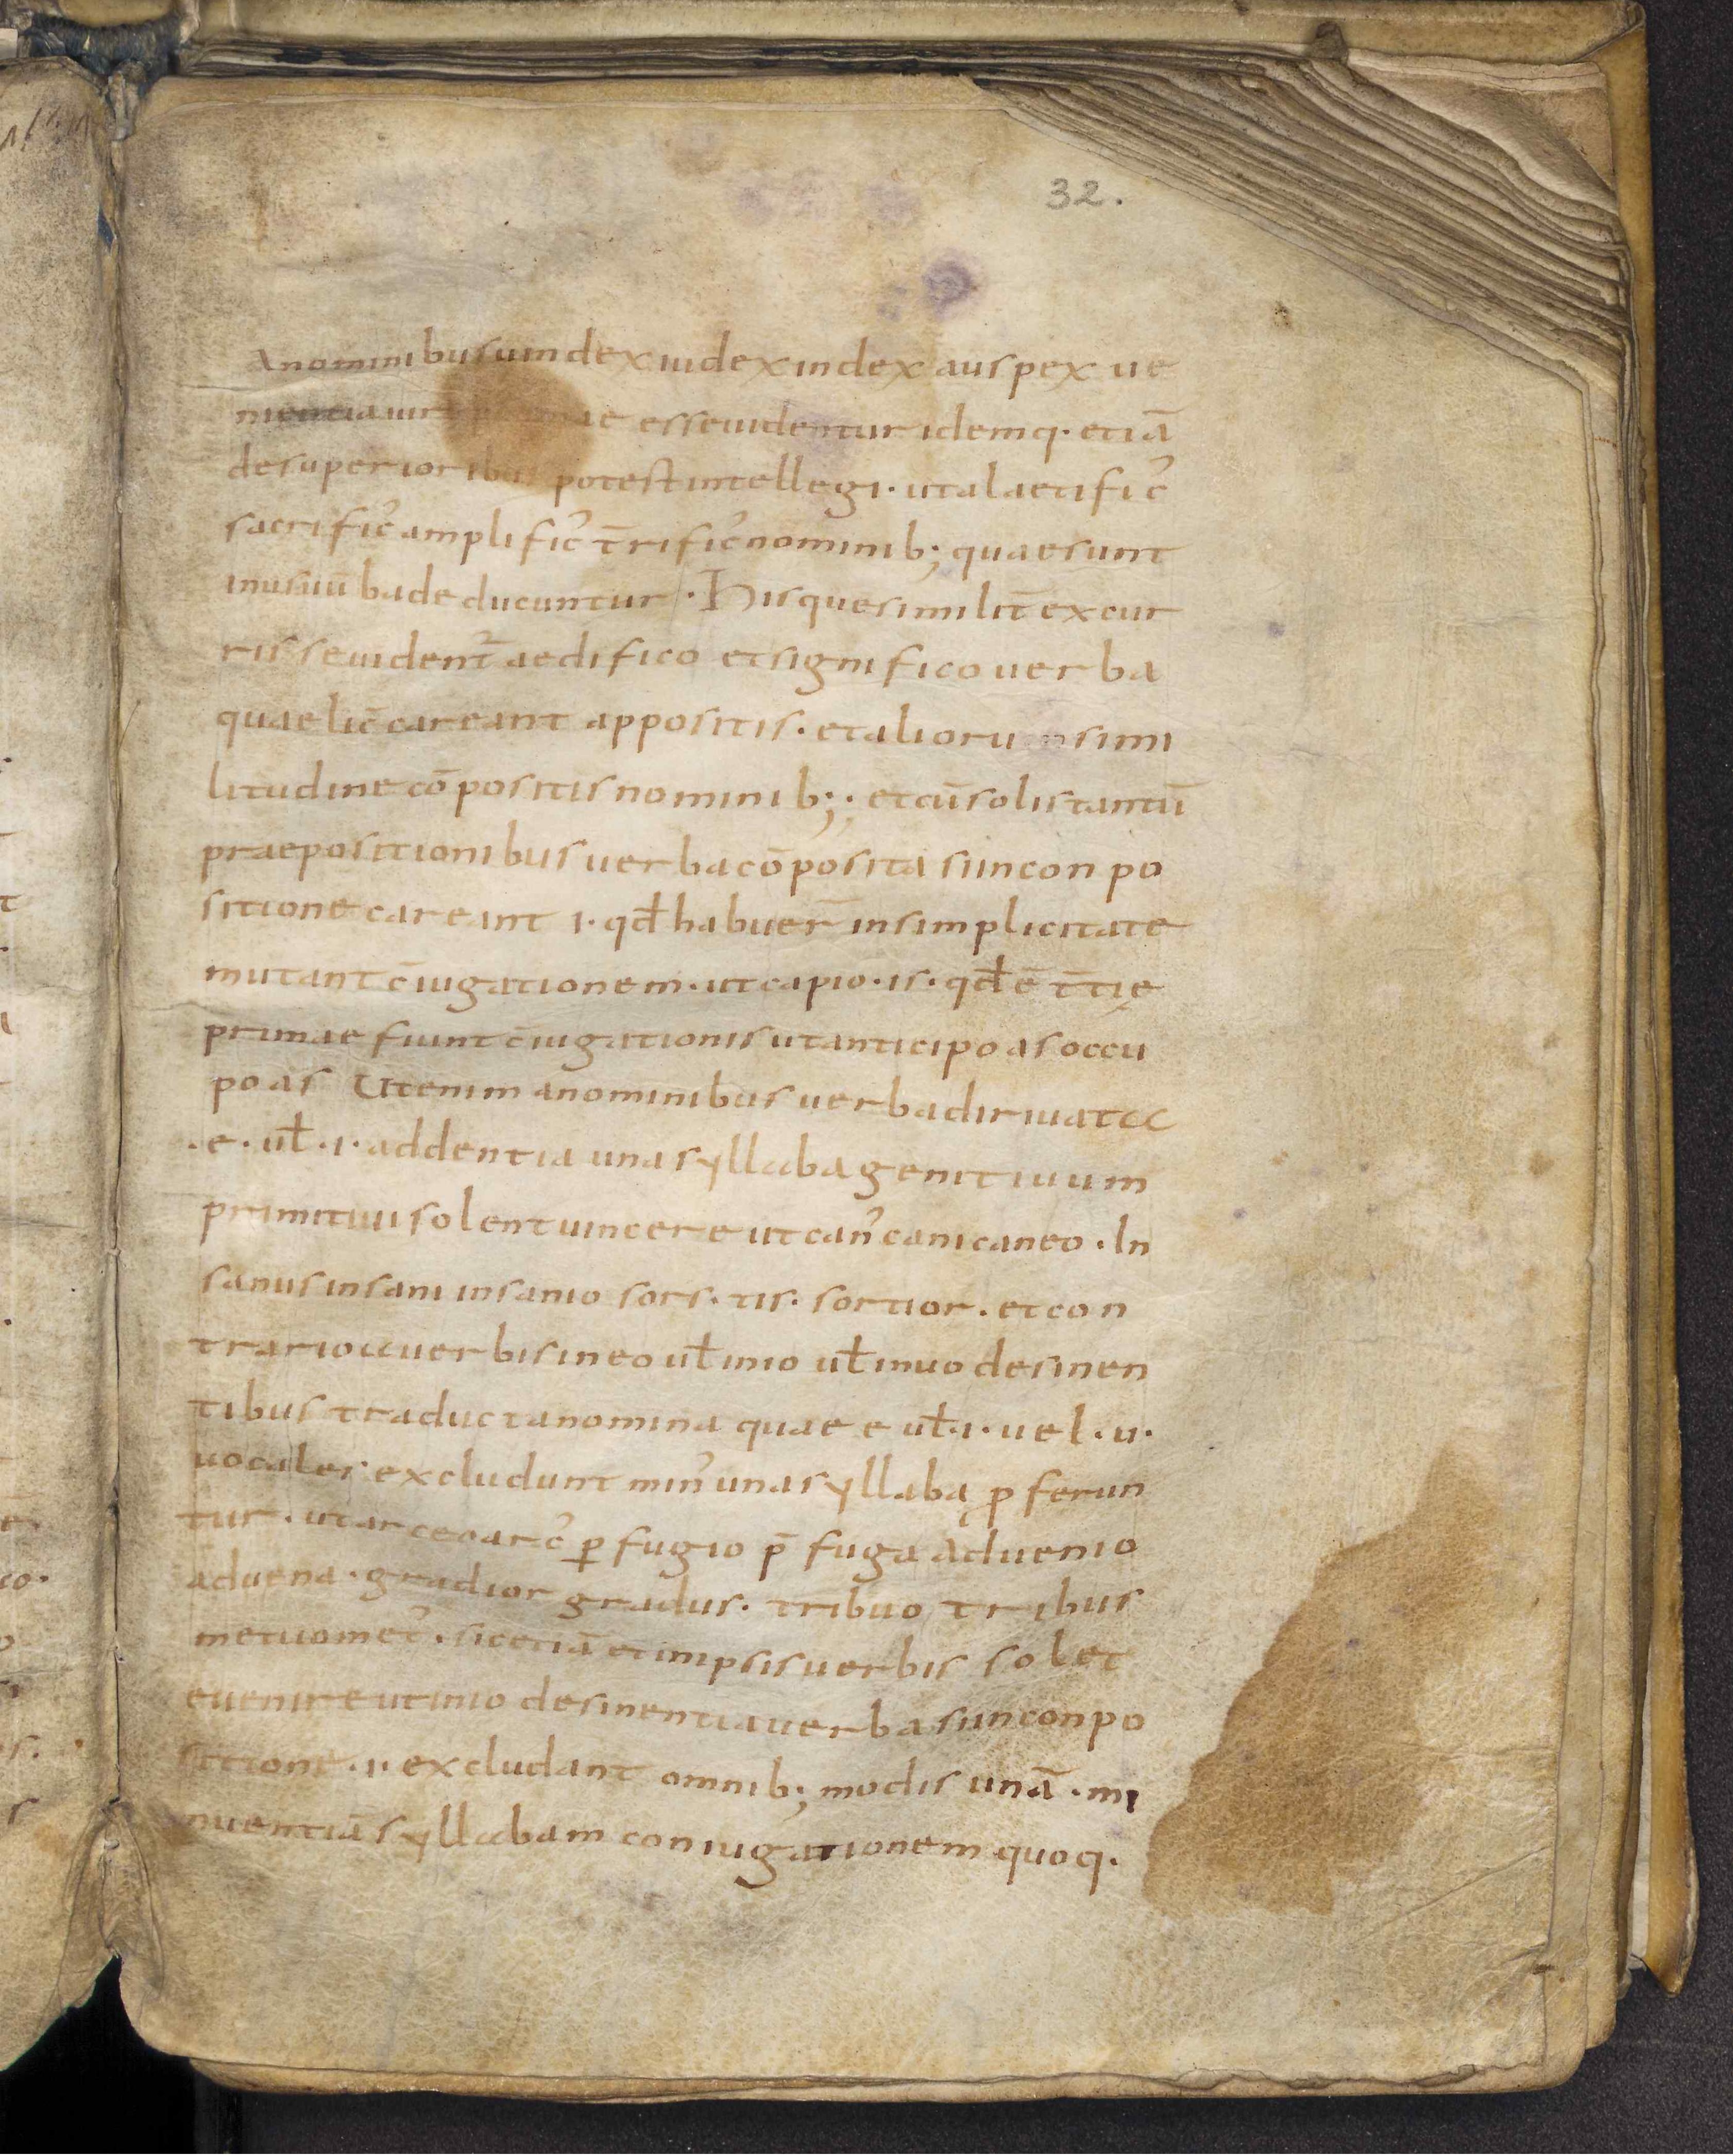 32.
A nominibus uindex iudex index auspex ue
nientia uir ae esse uidentur idemq· etiā
de superioribus potest intellegi· ut a laetific᾽
sacrific᾽ amplific᾽ t̄rific᾽ nominib; quae sunt
in usu ūba deducuntur· Hisque similit̄ excur
risse uident᾽ aedifico et significo uerba
quae lic̄ careant appositis· et aliorum simi
litudine cōpositis nominib;· et cū solis tantū
praepositionibus uerba cōposita si in conpo
sitione careant i· qđ habuer̄ in simplicitate
mutant c̄iugationem· ut capio·is· qđ ē t̄tię
primae fiunt c̄iugationis ut anticipo as occu
po as Ut enim a nominibus uerba diriuata
·e· uł ·i· addentia una syllaba genitiuum
primitiui solent uincere ut can᾽ cani caneo· In
sanus insani insanio sors· tis· sortior· et con
trario a uerbis in eo uł in io uł in uo desinen
tibus traducta nomina quae e uł·i· uel·u·
uocales excludunt min᾽ una syllabą ꝓferun
tur· ut arceo arc᾽ ꝑfugio p̄fuga aduenio
aduena· gradior gradus· tribuo tribus
metuo met᾽· sic etiā et in ipsis uerbis solet
euenire ut in io desinentia uerba si in conpo
sitione ·i· excludant omnib; modis unā ·mi
nuentia syllabam coniugationem quoq·